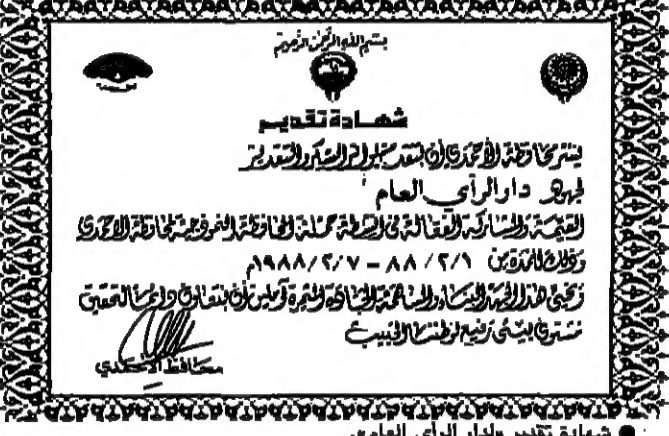 بسم الله الرحمن الرحيم
شهادة تقدير
يسر محافظة الأحمدي أن تتقدم بجزيل الشكر والتقدير
لجهود دار الرأي العام
القيمة والمشاركة الفعالة في أنشطة حملة المحافظة النموذجية لمحافظة الأحمدي
وذلك للمدة من ٨٨/٢/١ – ١٩٨٨/٢/٧م
هذا الجهد البناء والمساهمة الجادة المثمرة آملين أن نتعاون دائماً لتحقيق
مستوى بيئي رفيع لوطننا الحبيب
محافظ الأحمدي
● شهادة تقدير لدار الرأي العام